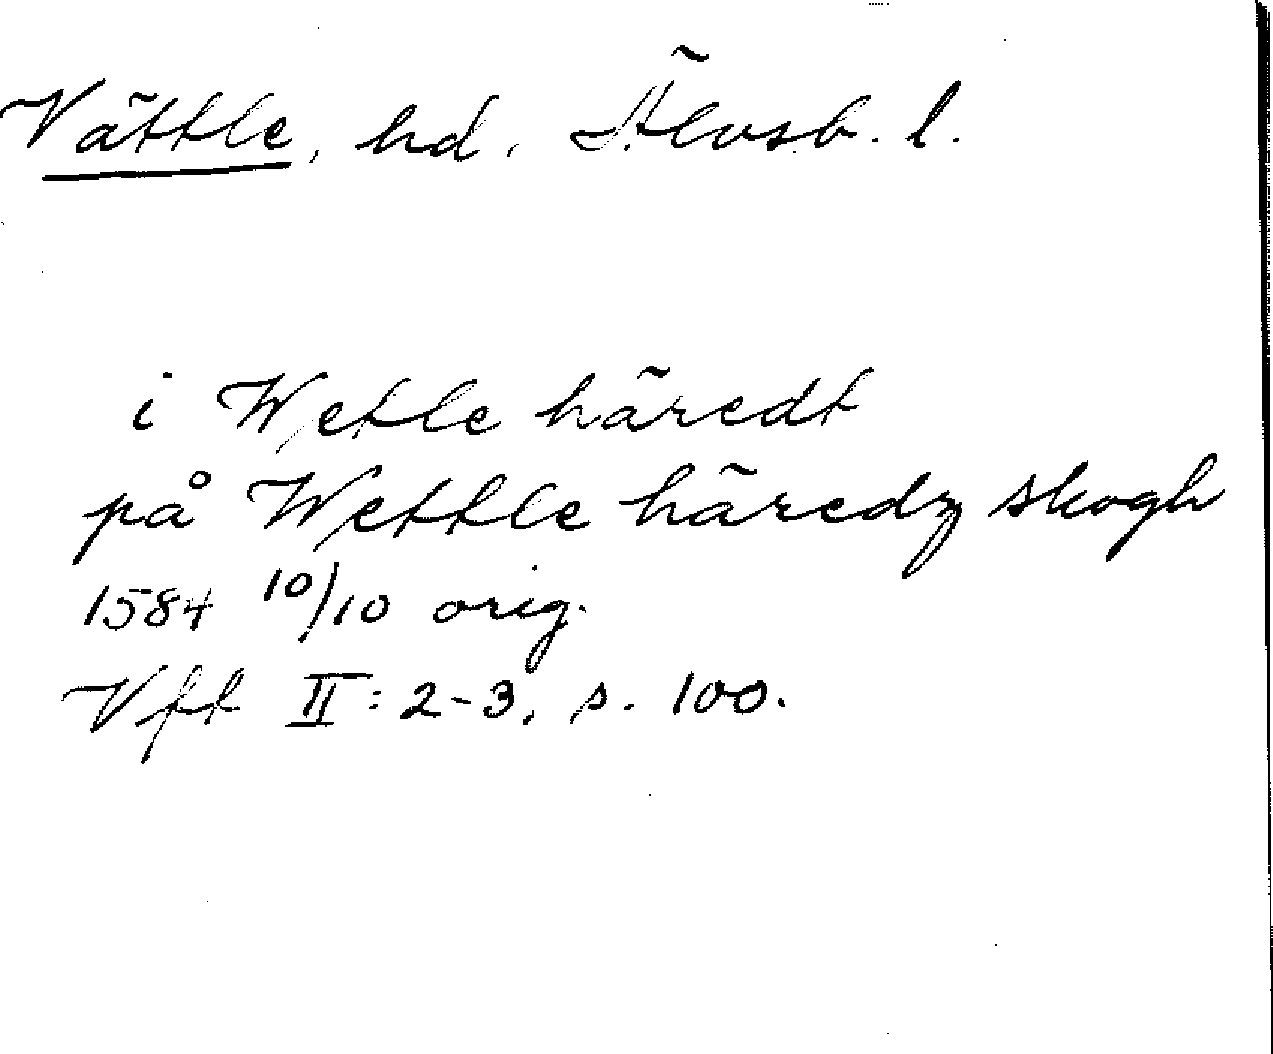 Vättle, hd. Älvsb. l.
i Wetle häredt
på Wettle häredz skogh
1584 10/10 orig.
Vft II: 2-3, s. 100.